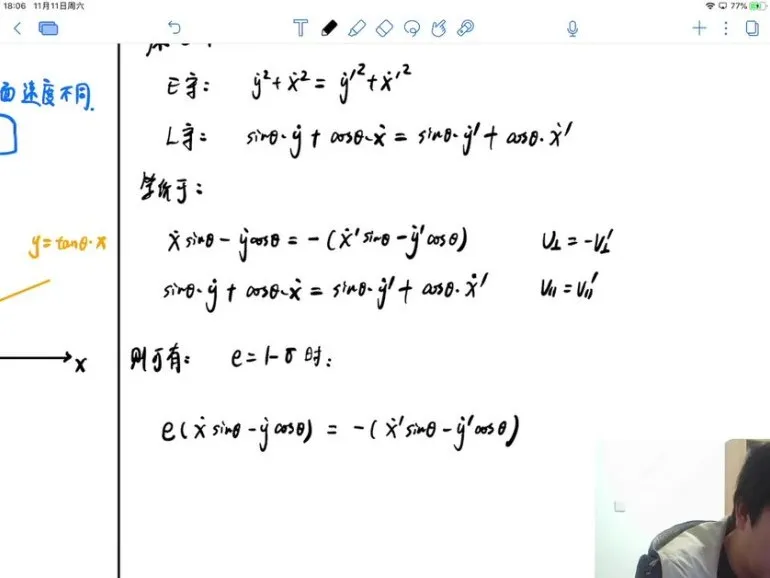 18:06 11月11日周六
77%
面速度不同.
y = tanθ·x
x
E守: ẏ² + ẋ² = ẏ'² + ẋ'²
L守: sinθ·ẏ + cosθ·ẋ = sinθ·ẏ' + cosθ·ẋ'
等价于:
ẋ sinθ - ẏ cosθ = -(ẋ' sinθ - ẏ' cosθ) v⊥ = -v⊥'
sinθ·ẏ + cosθ·ẋ = sinθ·ẏ' + cosθ·ẋ' v∥ = v∥'
则可有: e = 1-δ 时:
e(ẋ sinθ - ẏ cosθ) = -(ẋ' sinθ - ẏ' cosθ)